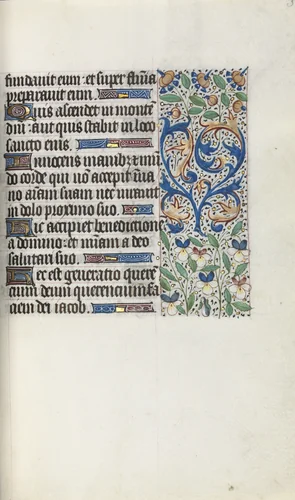 fundauit eum: et super flumina
preparauit eum.
Quis ascendet in monte
dni: aut quis stabit in loco
sancto eius.
Innocens manib; et mu
corde qui no accepit in ua
no aiam suam nec iurauit
in dolo proximo suo.
Hic accipiet benediction
a domino: et miam a deo
salutari suo.
Hec est generatio quere
cium deum querencium fa
ciem dei iacob.